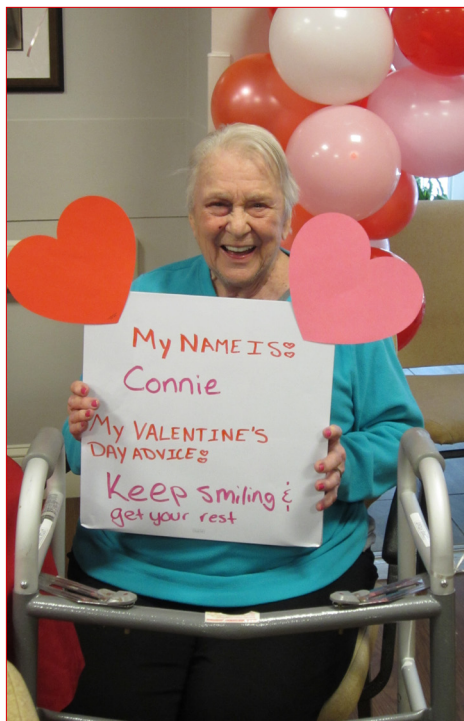 My NAME IS:
Connie
My VALENTINE'S
DAY ADVICE:
Keep smiling &
get your rest